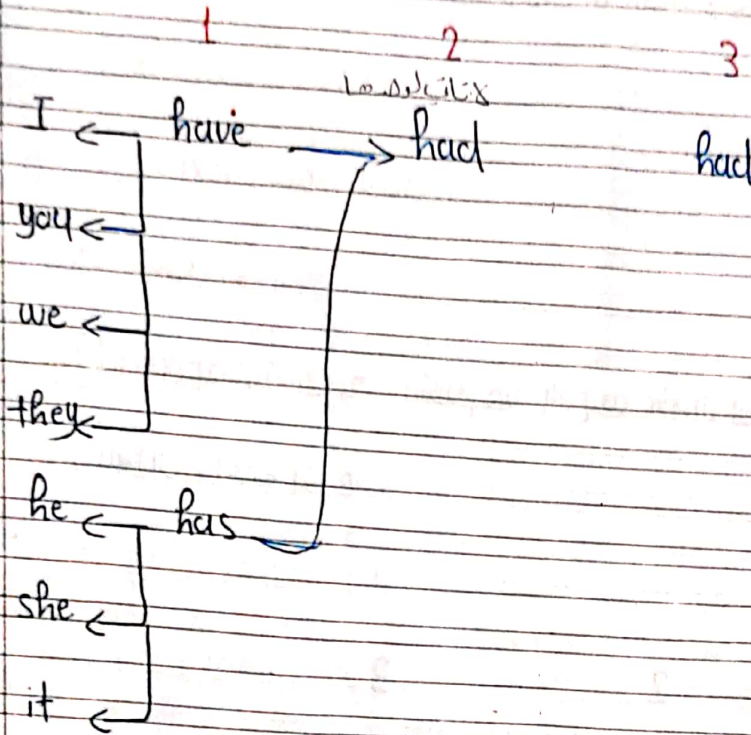 1 2 3
I have had had
you
we
they
he has
she
it